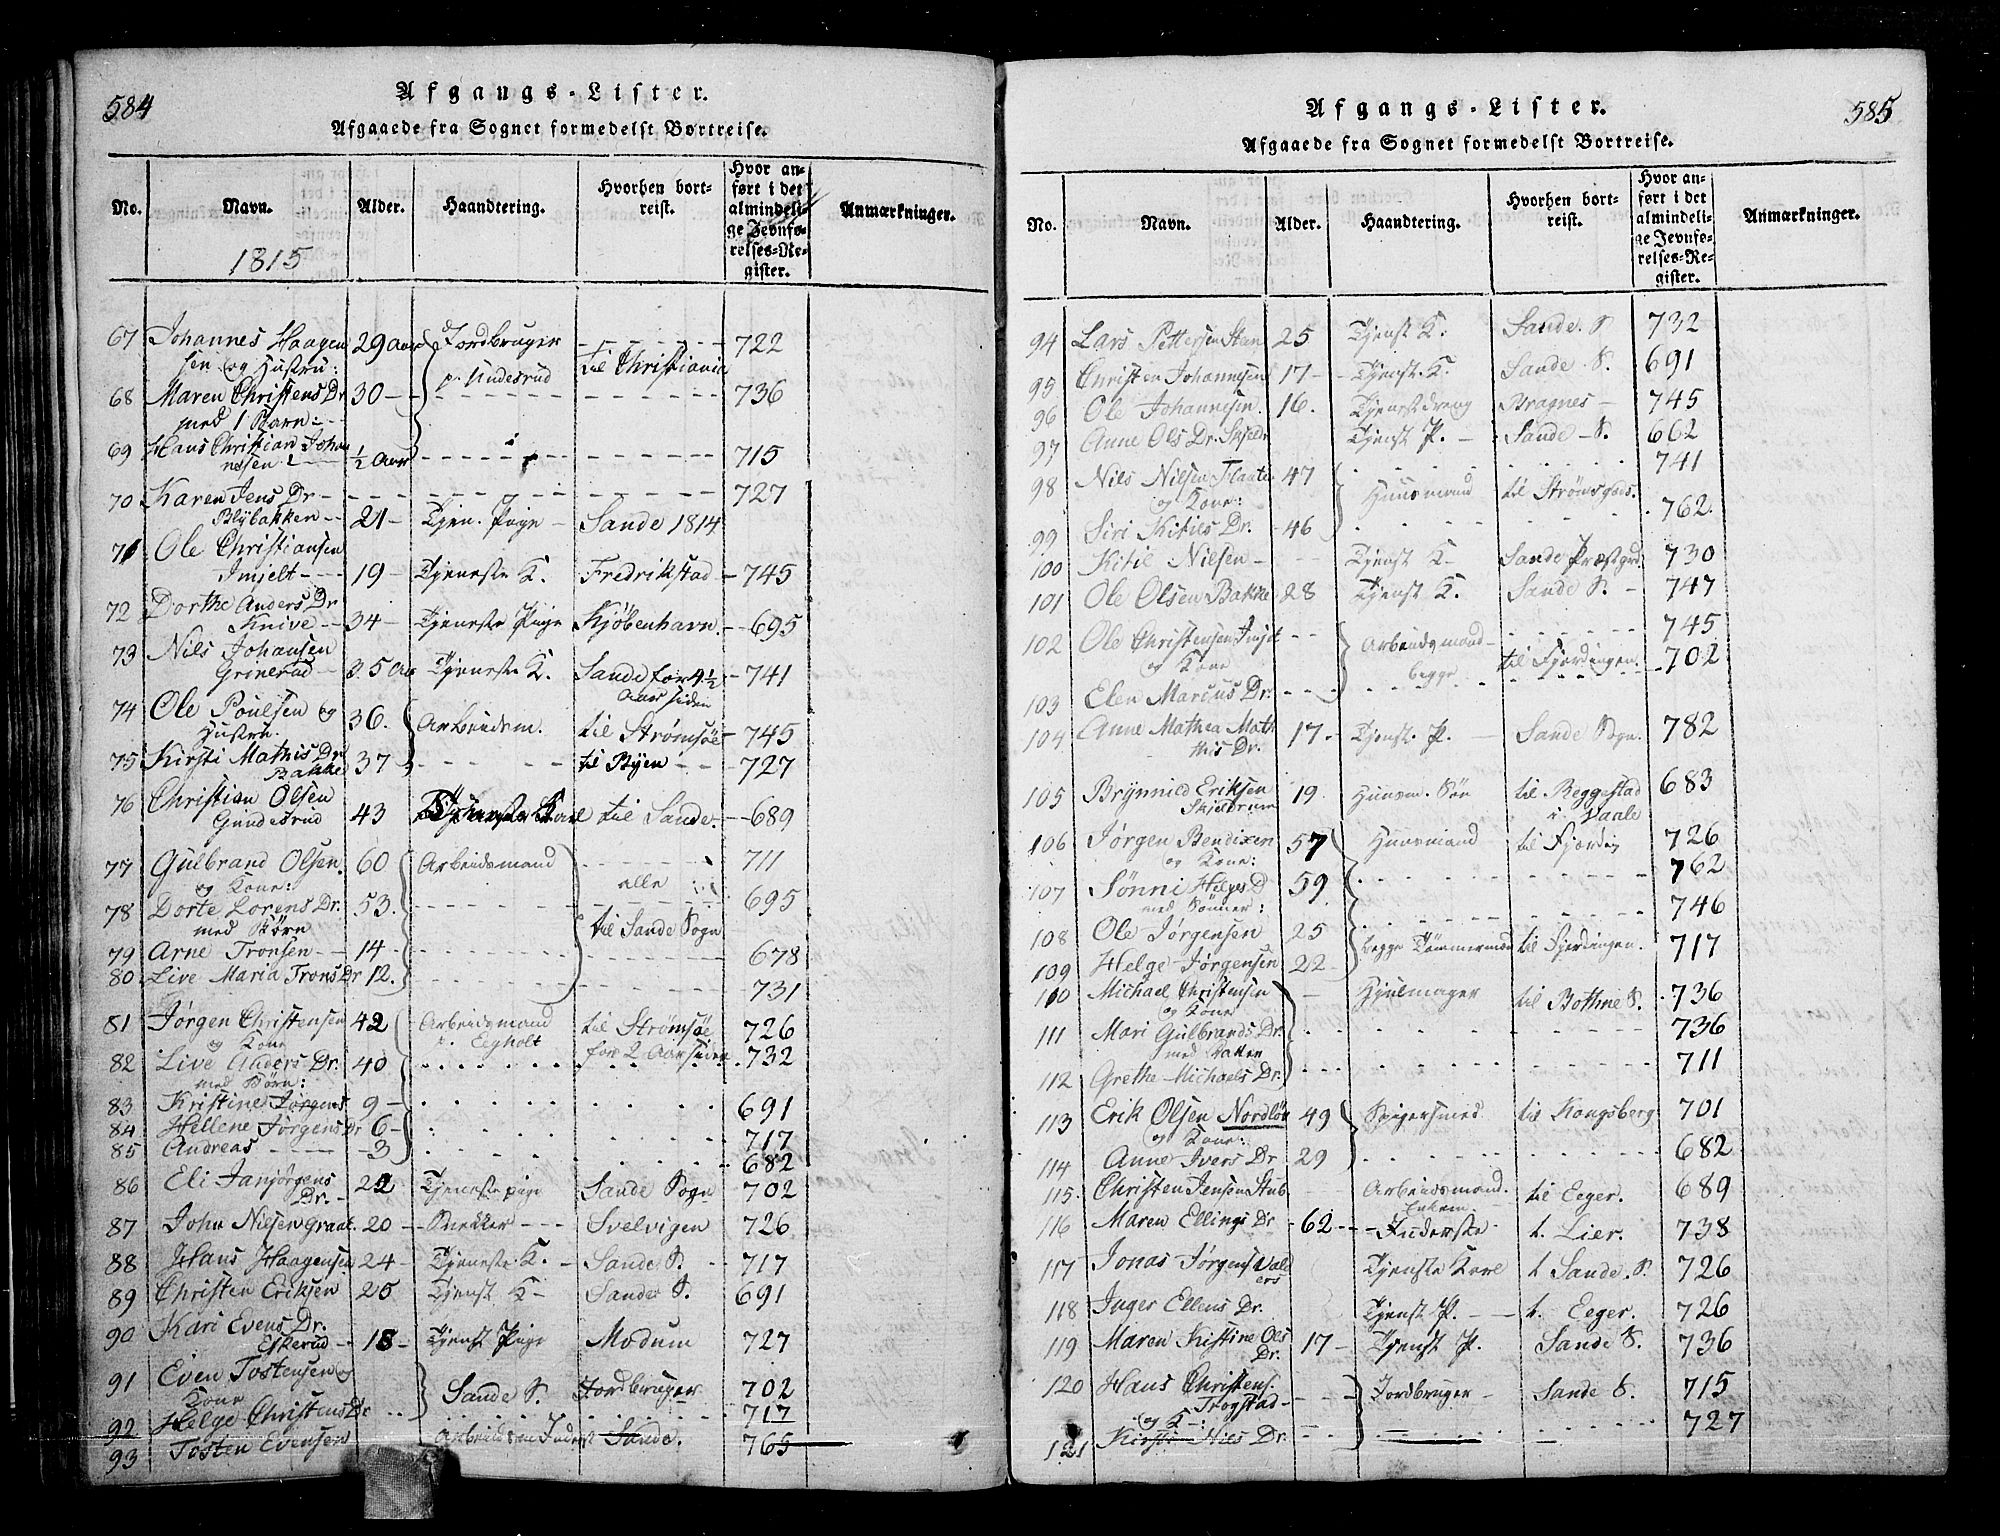 584
Afgangs-Lister.
Afgaaede fra Sognet formedelst Bortreise.
No. Navn. Alder. Haandtering. Hvorhen bortreist. Hvor anført i det almindelige Jevnførelses-Register. Anmærkninger.
1815
67 Johannes Haagen 29 Aar Jordbruger - - - - - 722
sen og Hustru: p. Undesrud til Christiania
68 Maren Christens Dr 30 - - - - - - - - 736
med 1 Barn: - -
69 Hans Christian Johan
nesen - - 1/2 Aar - - - - - - 715
70 Karen Jens Dr - - - - - - - - 727
Blybakken - - 21 - Tjen. Pige - Sande 1814
71 Ole Christiansen
Imjelt - - - 19 - Tjeneste K. Fredrikstad - 745
72 Dorthe Anders Dr
Knive - - 34 - Tjeneste Pige Kjøbenhavn. - - 695
73 Nils Johansen
Grinerud - 35 Aar Tjeneste K. Sande for 4 1/2 - 741
Aar siden
74 Ole Poulsen og 36. Arbeidsm. til Strømsøe - 745
Hustru.
75 Kirsti Mathis Dr 37 - - - - - til Byen - - 727
Bakke
76 Christian Olsen
Gundesrud 43 Tjeneste Karl til Sande. - - 689
77 Gulbrand Olsen. 60 Arbeidsmand - - - - - 711
og Kone: alle
78 Dorte Lorens Dr. 53. - - - - - 695
med Børn til Sande Sogn
79 Arne Tronsen - - 14 - - - - - - - 678
80 Live Maria Trons Dr 12. - - - - - 731
81 Jørgen Christensen 42 Arbeidsmand til Strømsøe 726
og Kone Eegholt
82 Live Anders Dr. 40 for 2 Aar siden . 732
med Børn:
83 Kristine Jørgens 9 - . . . . . 691
84 Hellene Jørgens Dr 6 - . . . . 717
85 Andreas - - - - 3 . . . . 682
86 Eli Janjørgens 22 Tjeneste pige Sande Sogn 702
Dr. -
87 John Nilsen Graat. 20 - - Snekker - - - Svelvigen 726
88 Hans Haagensen 24 - Tjeneste K. - Sande S. - 717
89 Christen Eriksen 25 Tjenst K - Sande S. 691
90 Kari Evens Dr.
Eskerud - - 18 - Tjenst Pige Modum 727
91 Even Tostensen og Sande S. Jordbruger 702
Kone
92 Helge Christens Dr . . . . . 717
93 Tosten Evensen Sande. 765
585
Afgangs-Lister.
Afgaaede fra Sognet formedelst Bortreise.
No. Navn. Alder. Haandtering. Hvorhen bortreist. Hvor anført i det almindelige Jevnførelses-Register. Anmærkninger.
94 Lars Pettersen Sten 25 Tjenst K. Sande. S. 732
95 Christen Johannesen 17 - Tjenst. K. Sande. S. 691
96 Ole Johannesen. 16. Tjenstdreng Bragnes - 745
97 Anne Ols Dr. Tjenst P. - Sande - S. 662
98 Nils Nilsen Flaaten 47 . . . . . 741
og Kone: Huusmand til Strømsgods.
99 Siri Kitils Dr. - 46 . . . . . 762.
100 Kitil Nilsen - - - Tjenst K - Sande Præstgrd. 730
101 Ole Olsen Bakke 28 Tjenst K. Sande S. - 747
102 Ole Christensen Imjelt - - Arbeidsmand - - - - - 745
og Kone begge til Fjerdingen. - 702
103 Elen Marcus Dr. - - - . . . .
104 Anne Mathea Mat 17. - Tjenst. P. - Sande Sogn. 782
this Dr.
105 Brynnild Eriksen 19. Huusm. Søn til Beggestad 683
Skjeldrum i Vaale
106 Jørgen Bendixen 57 Huusmand til Fjerding 726
og Kone:
107 Sønni Helges D 59. - - - - - 762
med Sønner:
108 Ole Jørgensen 25 - - - - - 746
109 Helge Jørgensen 22 - begge Tømmermænd til Fjerdingen. 717
110 Michael Christensen - Hjulmager til Bothne S. . 736
og Kone
111 Mari Gulbrands Dr. . - - - - - 736
med Datter
112 Grethe Michaels Dr. - - - - - 711
113 Erik Olsen Nordløv 49 Spigersmed til Kongsberg 701
og Kone:
114 Anne Ivers Dr 29 . - - - - 682
115. Christen Jensen Stub. Arbeidsmand. til Eeger. 689
116 Maren Ellings Dr - 62 - - Enkem. - Inderste t. Lier. 738
117 Jonas Jørgens Vald Tjenste Karl t. Sande. S. 726
ers
118 Inger Ellens Dr. Tjenst P. - - t. Eeger. 726
119 Maren Kistine Ols 17 - Tjenst P. Sande S. 736
Dr.
120 Hans Christens. - - - Jordbruger - Sande S. 715
Trogstad -
og K - :
121 Kirsti Nils Dr. - - . . . . 727